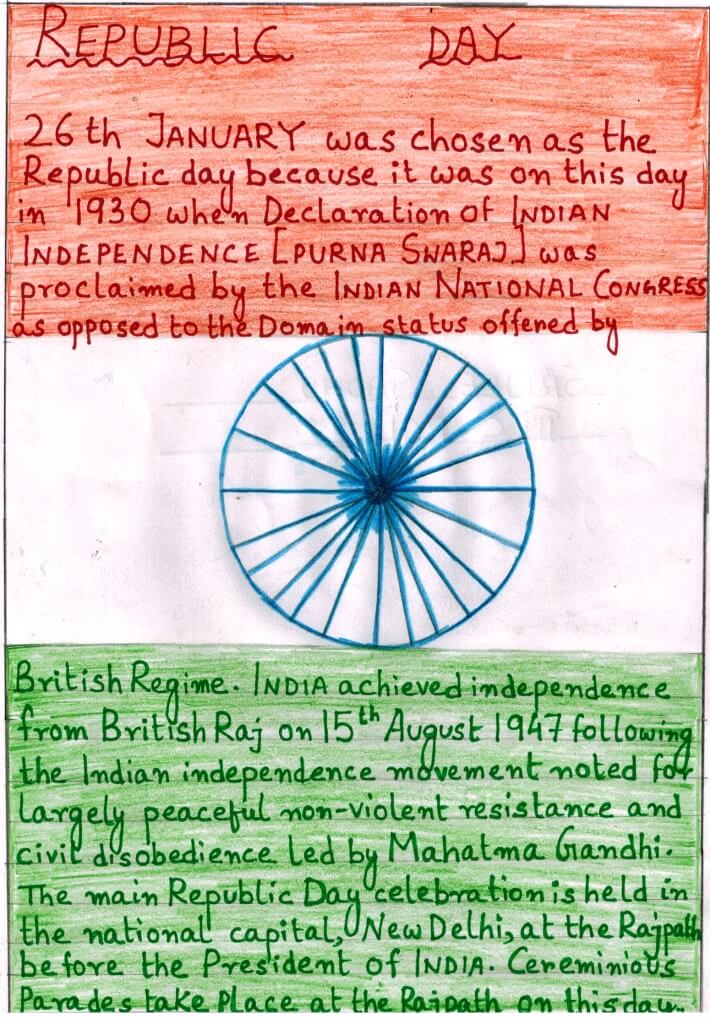 REPUBLIC DAY
26th JANUARY was chosen as the
Republic day because it was on this day
in 1930 when Declaration of INDIAN
INDEPENDENCE [PURNA SWARAJ] was
proclaimed by the INDIAN NATIONAL CONGRESS
as opposed to the Domain status offered by
British Regime. INDIA achieved independence
from British Raj on 15th August 1947 following
the Indian independence movement noted for
largely peaceful non-violent resistance and
civil disobedience led by Mahatma Gandhi.
The main Republic Day celebration is held in
the national capital, New Delhi, at the Rajpath
before the President of INDIA. Cereminious
Parades take Place at the Rajpath on this day.